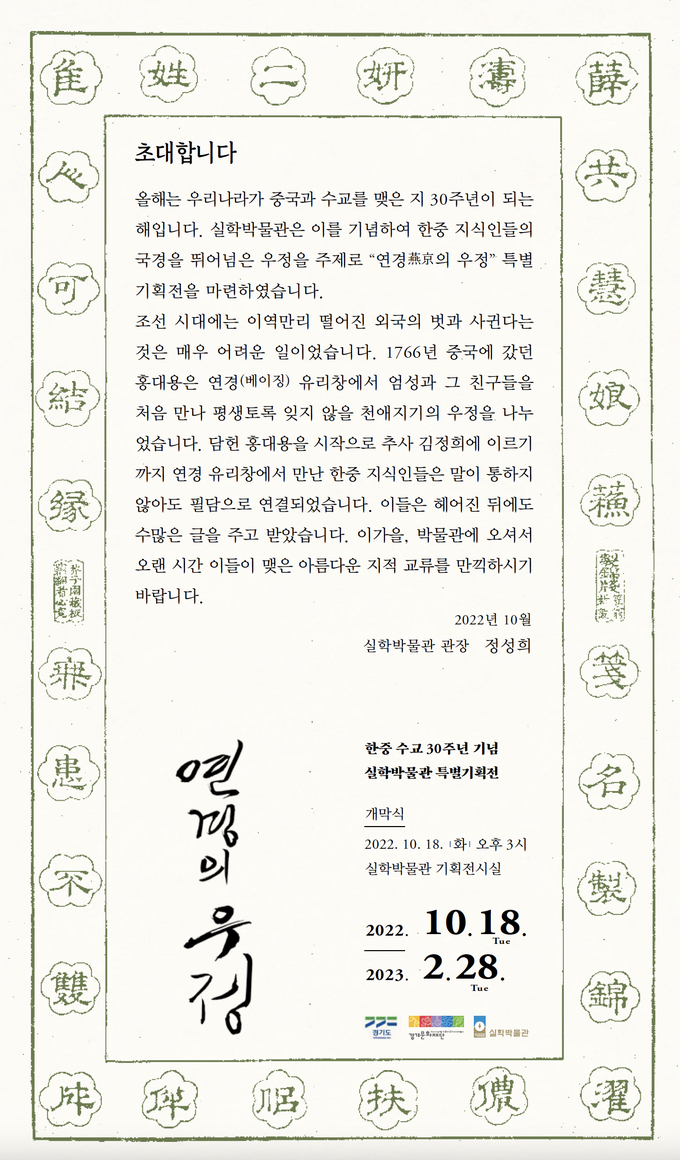 初대합니다
올해는 우리나라가 중국과 수교를 맺은 지 30주년이 되는
해입니다. 실학박물관은 이를 기념하여 한중 지식인들의
국경을 뛰어넘은 우정을 주제로 “연경燕京의 우정” 특별
기획전을 마련하였습니다.
조선 시대에는 이역만리 떨어진 외국의 벗과 사귄다는
것은 매우 어려운 일이었습니다. 1766년 중국에 갔던
홍대용은 연경(베이징) 유리창에서 엄성과 그 친구들을
처음 만나 평생토록 잊지 않을 천애지기의 우정을 나누
었습니다. 담헌 홍대용을 시작으로 추사 김정희에 이르기
까지 연경 유리창에서 만난 한중 지식인들은 말이 통하지
않아도 필담으로 연결되었습니다. 이들은 헤어진 뒤에도
수많은 글을 주고 받았습니다. 이가을, 박물관에 오셔서
오랜 시간 이들이 맺은 아름다운 지적 교류를 만끽하시기
바랍니다.
2022년 10월
실학박물관 관장 정성희
연경의 우정
한중 수교 30주년 기념
실학박물관 특별기획전
개막식
2022. 10. 18. |화| 오후 3시
실학박물관 기획전시실
2022. 10. 18.
Tue
2023. 2. 28.
Tue
경기도
경기문화재단
실학박물관
姓 二 妍 濤 薛
共
慧
娘
蘓
箋
名
製
錦
濯
儂
扶
可
結
緣
無
患
不
雙